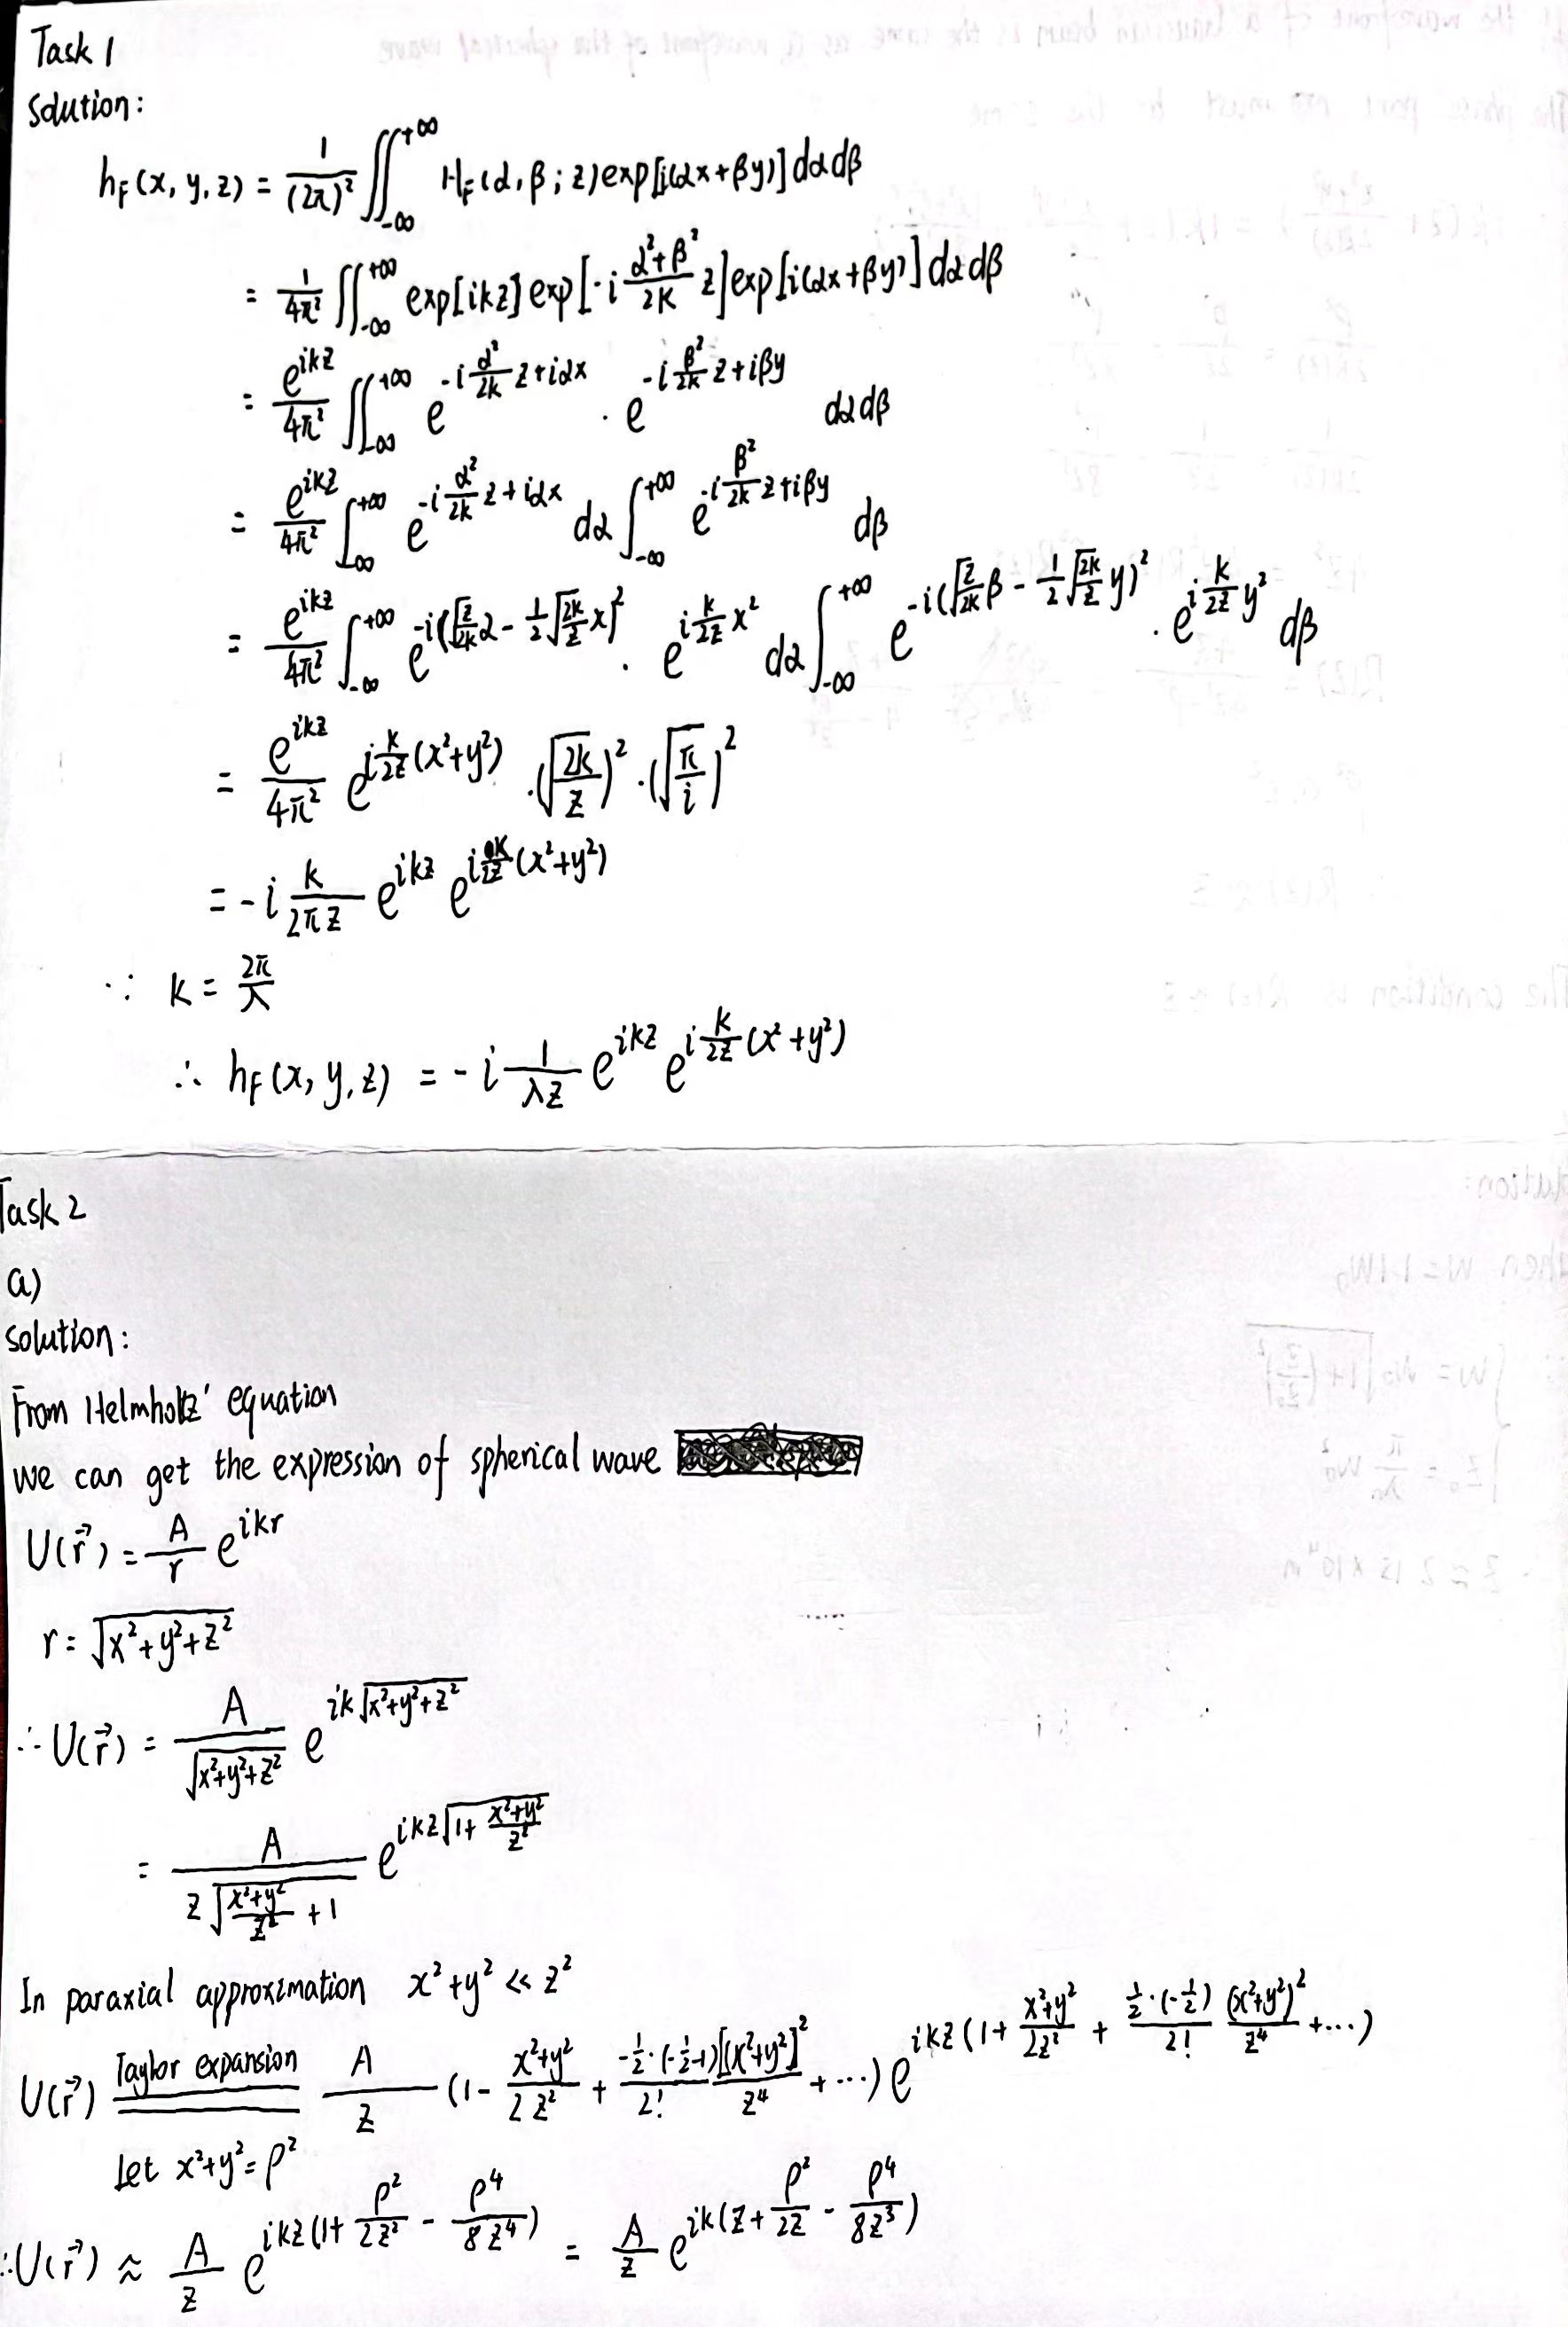 Task 1
Solution:
h_F(x, y, z) = \frac{1}{(2π)^2} \iint_{-∞}^{+∞} H_F(α, β; z) exp[i(αx+βy)] dα dβ
= \frac{1}{4π^2} \iint_{-∞}^{+∞} exp[ikz] exp[-i \frac{α^2+β^2}{2k} z] exp[i(αx+βy)] dα dβ
= \frac{e^{ikz}}{4π^2} \iint_{-∞}^{+∞} e^{-i\frac{α^2}{2k}z+iαx} · e^{-i\frac{β^2}{2k}z+iβy} dα dβ
= \frac{e^{ikz}}{4π^2} \int_{-∞}^{+∞} e^{-i\frac{α^2}{2k}z+iαx} dα \int_{-∞}^{+∞} e^{-i\frac{β^2}{2k}z+iβy} dβ
= \frac{e^{ikz}}{4π^2} \int_{-∞}^{+∞} e^{-i(\sqrt{\frac{z}{2k}}α - \frac{1}{2}\sqrt{\frac{2k}{z}}x)^2} · e^{i\frac{k}{2z}x^2} dα \int_{-∞}^{+∞} e^{-i(\sqrt{\frac{z}{2k}}β - \frac{1}{2}\sqrt{\frac{2k}{z}}y)^2} · e^{i\frac{k}{2z}y^2} dβ
= \frac{e^{ikz}}{4π^2} e^{i\frac{k}{2z}(x^2+y^2)} · (\sqrt{\frac{2k}{z}})^2 · (\sqrt{\frac{π}{i}})^2
= -i \frac{k}{2πz} e^{ikz} e^{i\frac{k}{2z}(x^2+y^2)}
∵ k = \frac{2π}{λ}
∴ h_F(x, y, z) = -i \frac{1}{λz} e^{ikz} e^{i\frac{k}{2z}(x^2+y^2)}
Task 2
a)
solution:
From Helmholtz' equation
we can get the expression of spherical wave
U(\vec{r}) = \frac{A}{r} e^{ikr}
r = \sqrt{x^2+y^2+z^2}
∴ U(\vec{r}) = \frac{A}{\sqrt{x^2+y^2+z^2}} e^{ik\sqrt{x^2+y^2+z^2}}
= \frac{A}{z\sqrt{\frac{x^2+y^2}{z^2}+1}} e^{ikz\sqrt{1+\frac{x^2+y^2}{z^2}}}
In paraxial approximation x^2+y^2 << z^2
U(\vec{r}) \xlongequal{Taylor expansion} \frac{A}{z} (1 - \frac{x^2+y^2}{2z^2} + \frac{-\frac{1}{2}·(-\frac{1}{2}-1)}{2!} \frac{[(x^2+y^2]^2}{z^4} + ···) e^{ikz(1+\frac{x^2+y^2}{2z^2} + \frac{\frac{1}{2}·(-\frac{1}{2})}{2!} \frac{(x^2+y^2)^2}{z^4} + ···)}
Let x^2+y^2 = ρ^2
∴ U(\vec{r}) ≈ \frac{A}{z} e^{ikz(1+\frac{ρ^2}{2z^2} - \frac{ρ^4}{8z^4})} = \frac{A}{z} e^{ik(z+\frac{ρ^2}{2z} - \frac{ρ^4}{8z^3})}